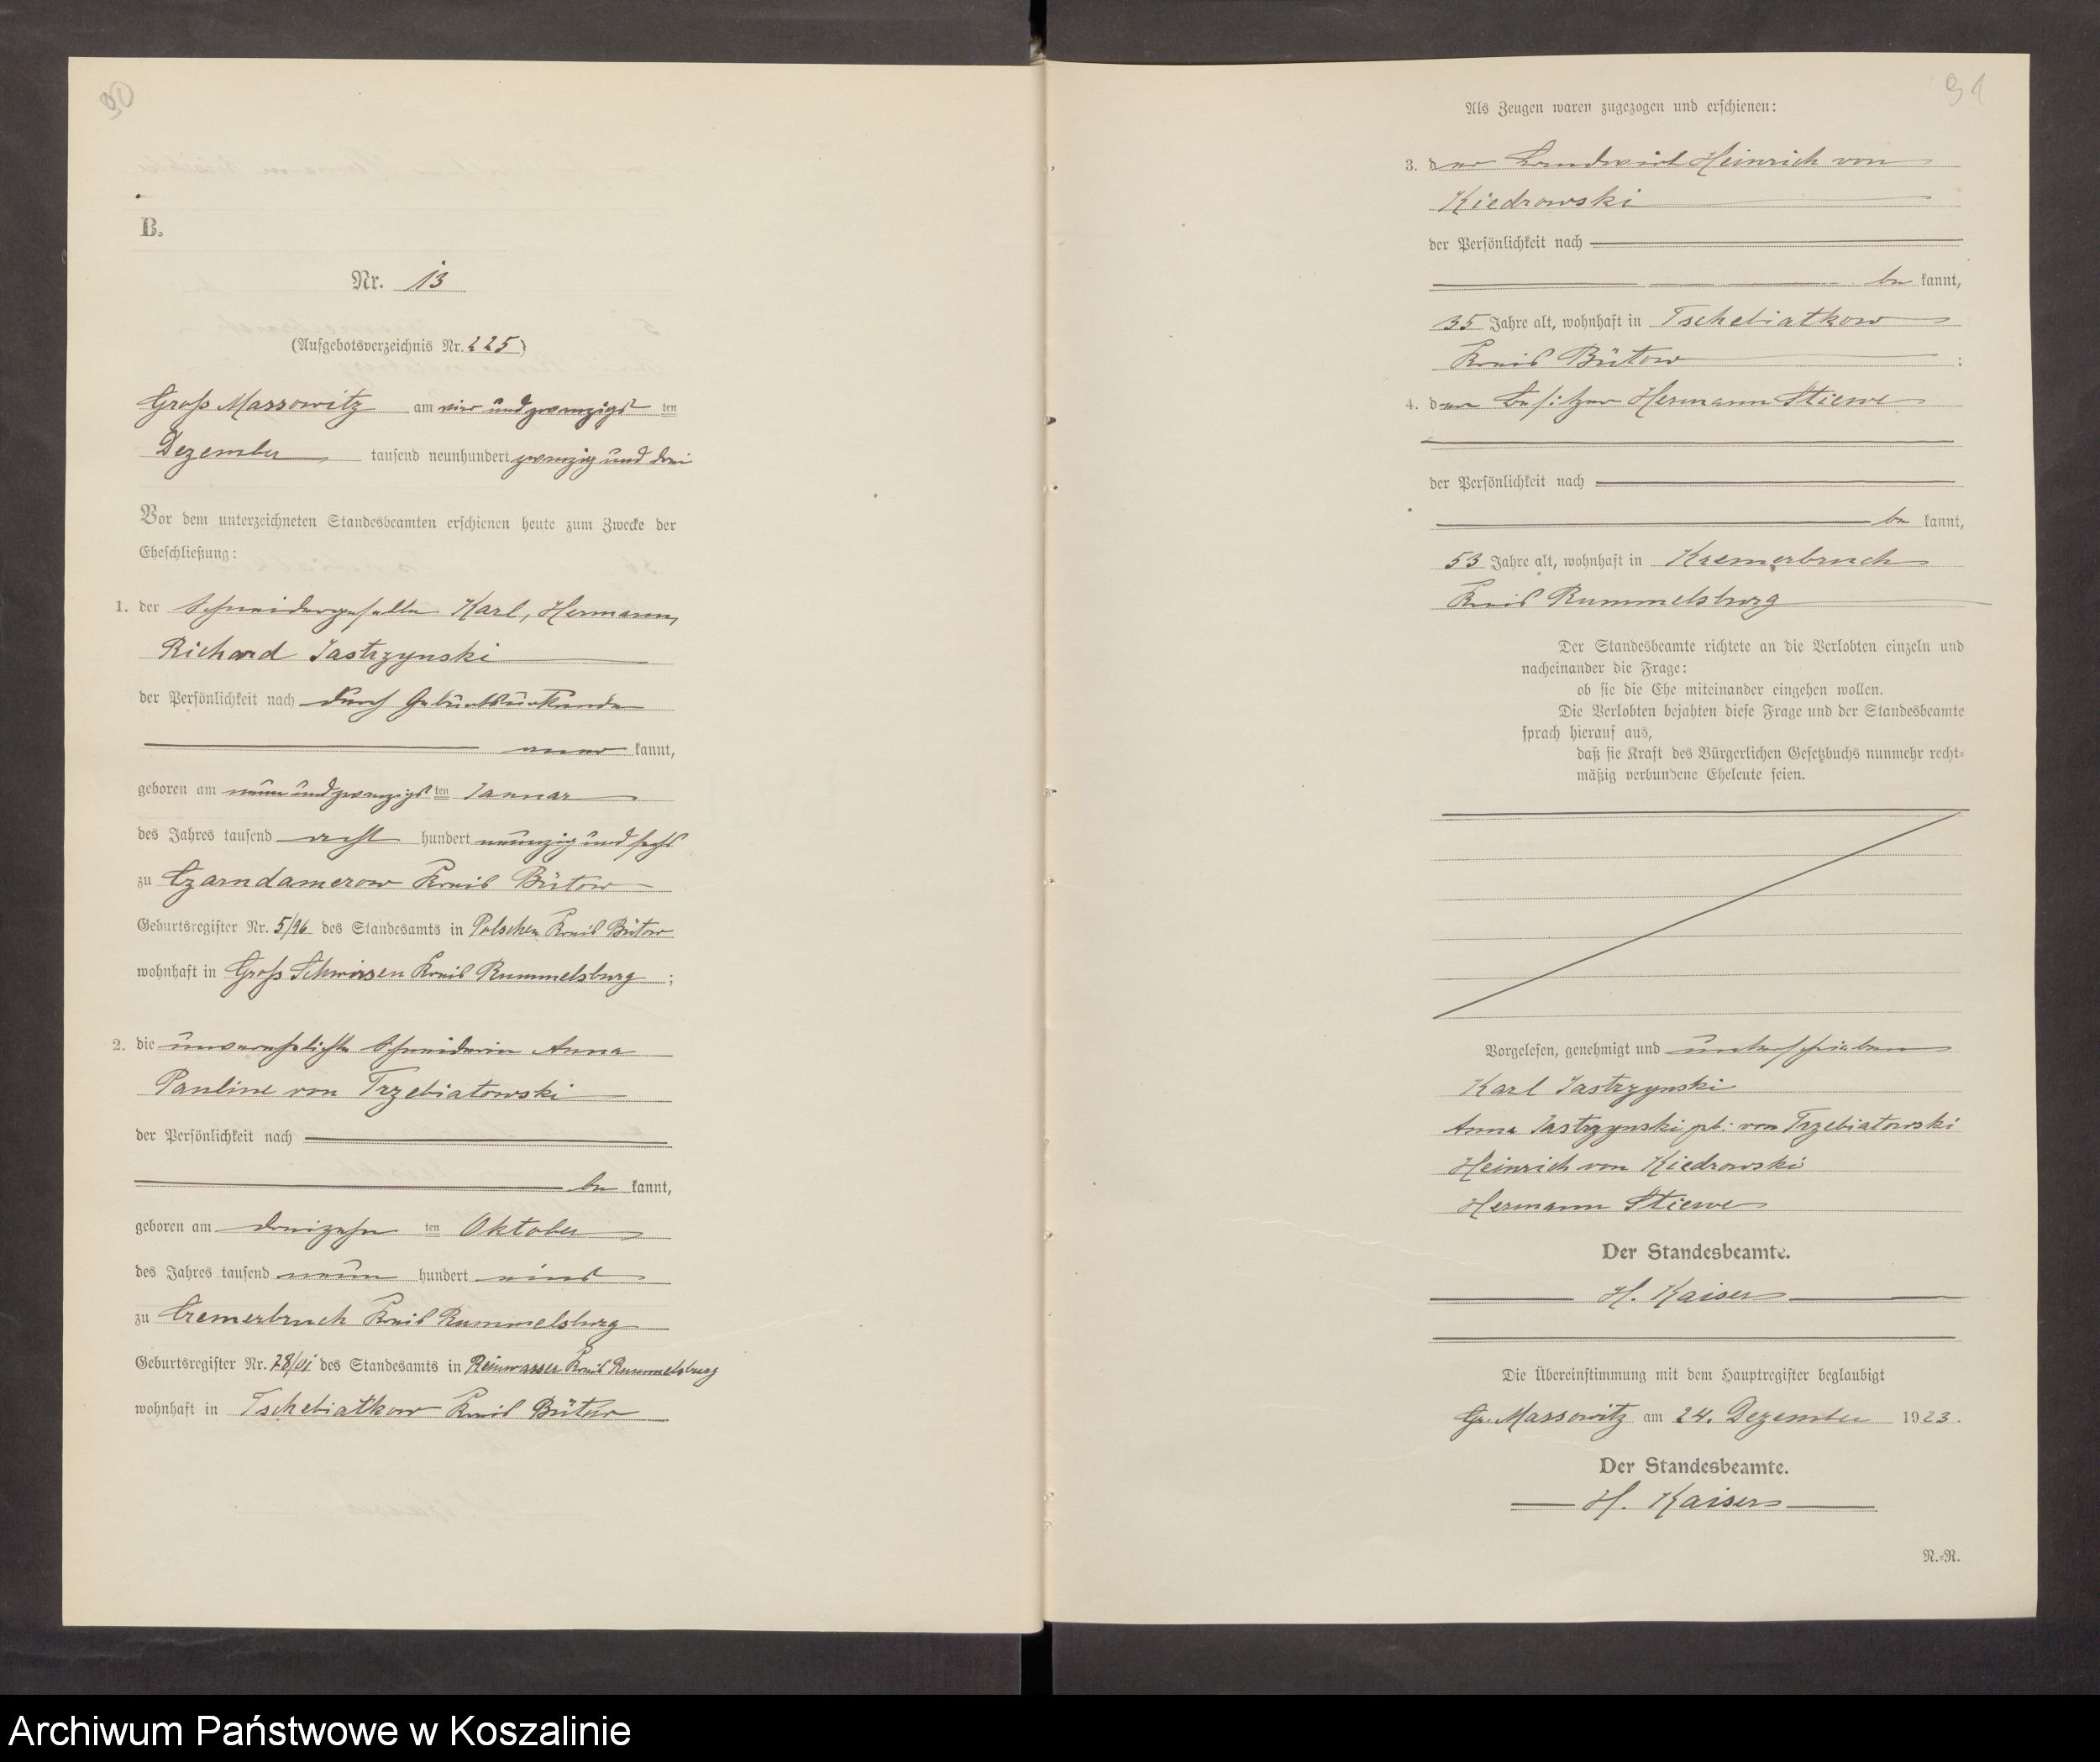 90
B.
Nr. 13
(Aufgebotsverzeichnis Nr. 225)
Groß Massowitz am vier und zwanzigst ten
Dezember tausend neunhundert zwanzig und drei
Vor dem unterzeichneten Standesbeamten erschienen heute zum Zwecke der
Eheschließung:
1. der Schneidergeselle Karl, Hermann,
Richard Jastrzynski
der Persönlichkeit nach durch Geburtsurkunde
aner kannt,
geboren am neun und zwanzigst ten Januar
des Jahres tausend acht hundert neunzig und sechs
zu Czarndamerow Kreis Bütow
Geburtsregister Nr. 5/96 des Standesamts in Polschen Kreis Bütow
wohnhaft in Groß Schwirsen Kreis Rummelsburg ;
2. die unverehelichte Schneiderin Anna
Pauline von Trzebiatowski
der Persönlichkeit nach
be kannt,
geboren am dreizehn ten Oktober
des Jahres tausend neun hundert eins
zu Cremerbruch Kreis Rummelsburg
Geburtsregister Nr. 78/01 des Standesamts in Reinwasser Kreis Rummelsburg
wohnhaft in Tschebiatkow Kreis Bütow
91
Als Zeugen waren zugezogen und erschienen:
3. der Landwirt Heinrich von
Kiedrowski
der Persönlichkeit nach
be kannt,
35 Jahre alt, wohnhaft in Tschebiatkow
Kreis Bütow ;
4. der Besitzer Hermann Stiewe
der Persönlichkeit nach
be kannt,
53 Jahre alt, wohnhaft in Kremerbruch
Kreis Rummelsburg
Der Standesbeamte richtete an die Verlobten einzeln und
nacheinander die Frage:
ob sie die Ehe miteinander eingehen wollen.
Die Verlobten bejahten diese Frage und der Standesbeamte
sprach hierauf aus,
daß sie Kraft des Bürgerlichen Gesetzbuchs nunmehr recht-
mäßig verbundene Eheleute seien.
Vorgelesen, genehmigt und unterschrieben
Karl Jastrzynski
Anna Jastrzynski geb: von Trzebiatowski
Heinrich von Kiedrowski
Hermann Stiewe
Der Standesbeamte.
H. Kaiser
Die Übereinstimmung mit dem Hauptregister beglaubigt
Gr. Massowitz am 24. Dezember 1923.
Der Standesbeamte.
H. Kaiser
N.-R.
Archiwum Państwowe w Koszalinie